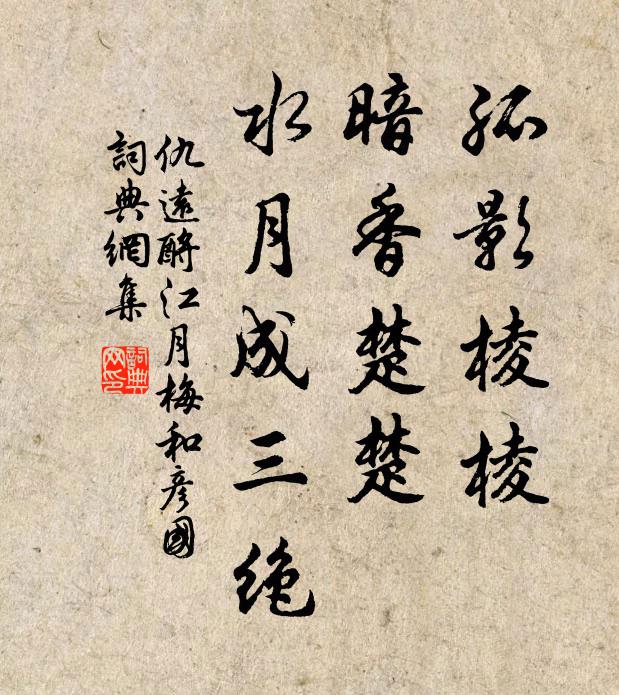 孤影棱棱
暗香楚楚
水月成三绝
仇遠酹江月梅和彦國
詞典網集
詞典网印